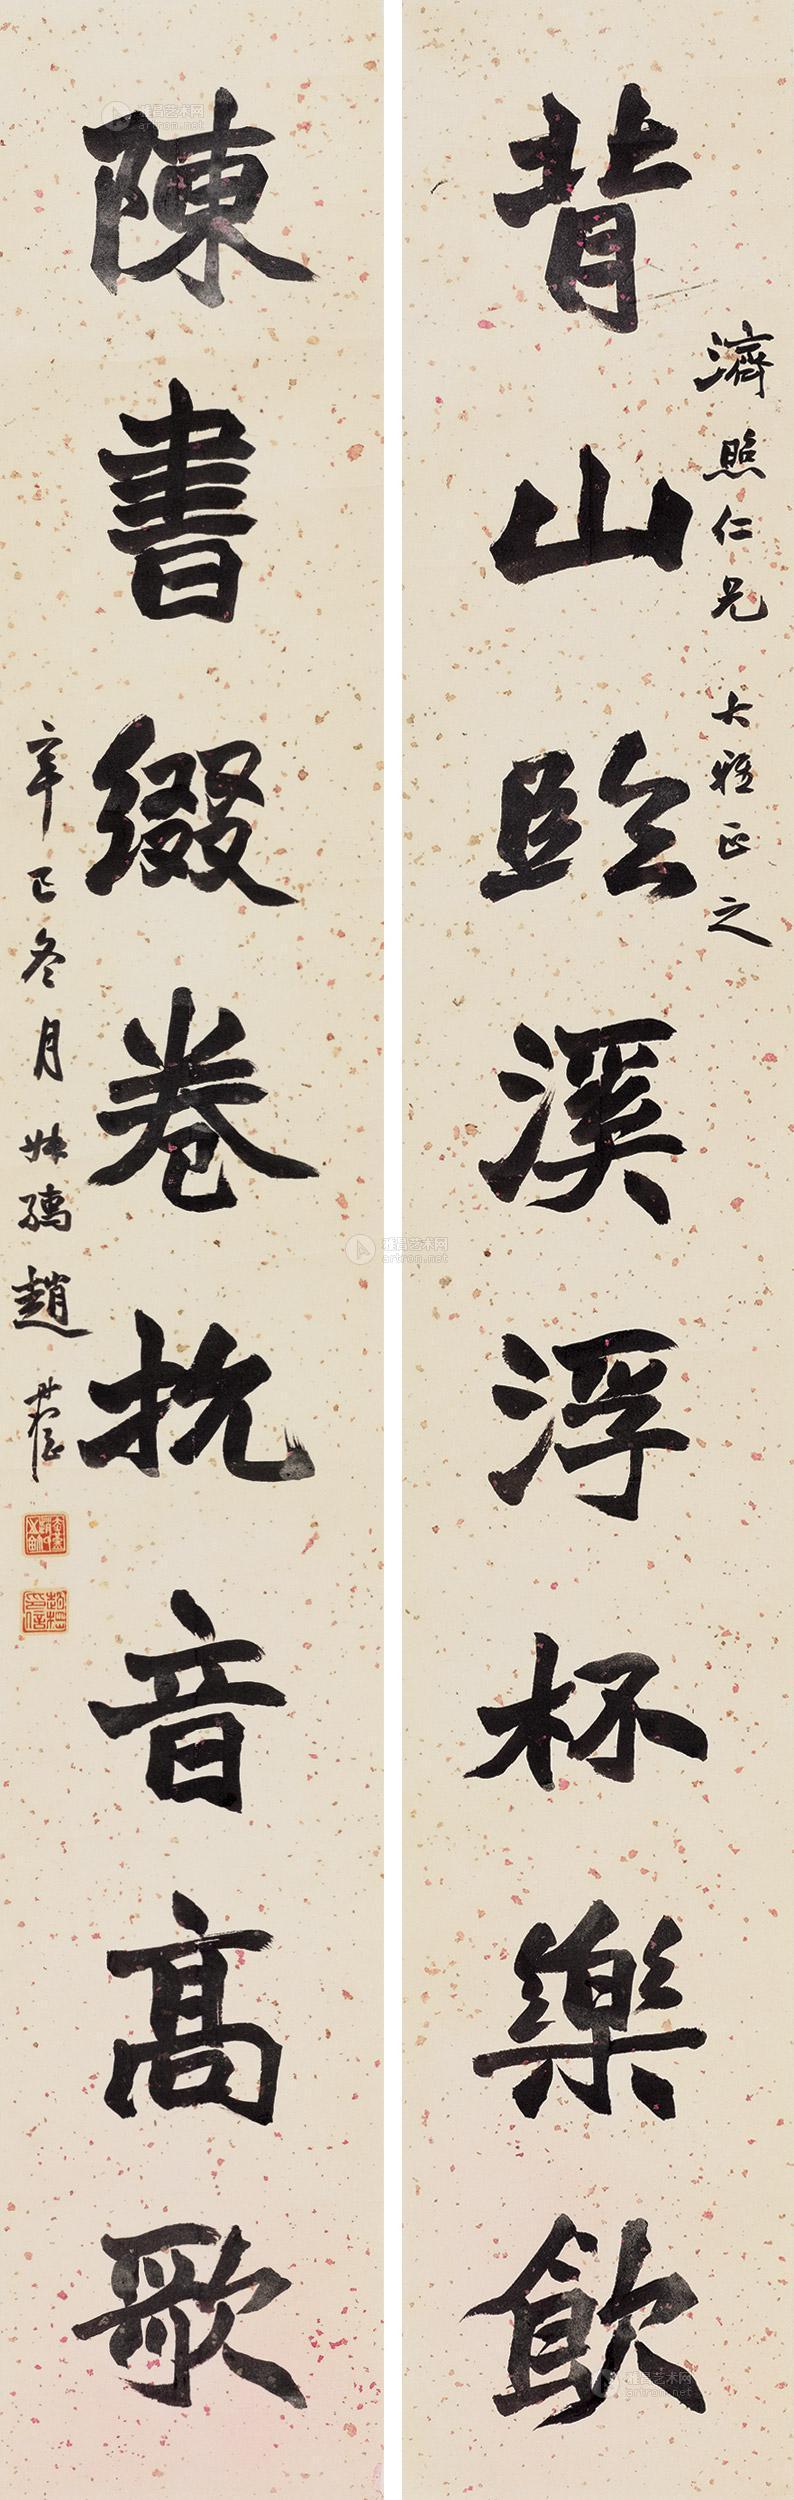 濟照仁兄大雅正之
背山臨溪浮杯樂飲
陳書綴卷抗音高歌
辛巳冬月叔孺趙時棡
雅昌艺术网
artron.net
雅昌艺术网
artron.net
雅昌艺术网
artron.net